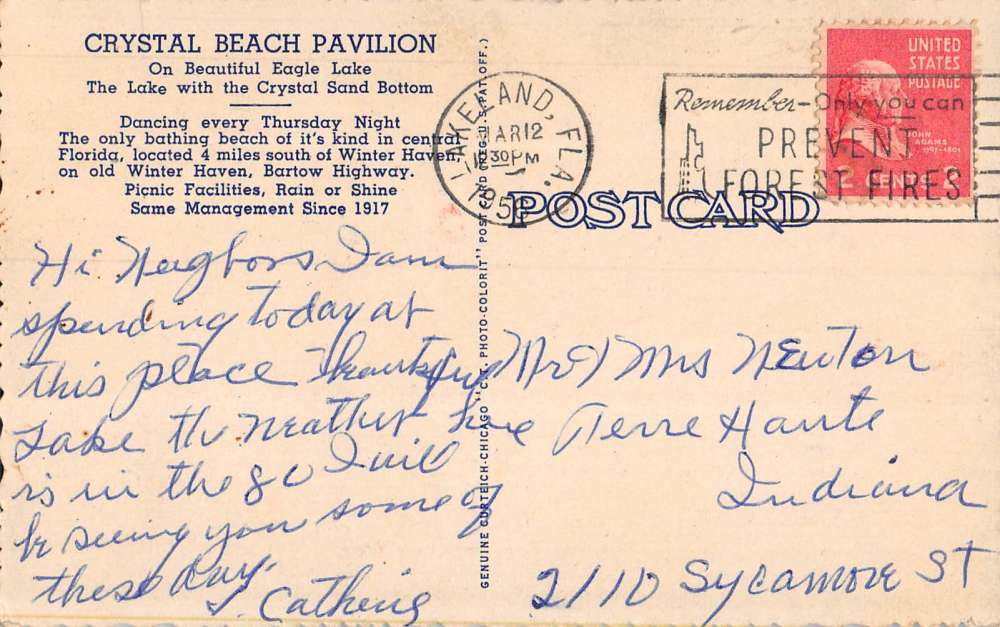 CRYSTAL BEACH PAVILION
On Beautiful Eagle Lake
The Lake with the Crystal Sand Bottom
Dancing every Thursday Night
The only bathing beach of it's kind in central
Florida, located 4 miles south of Winter Haven,
on old Winter Haven, Bartow Highway.
Picnic Facilities, Rain or Shine
Same Management Since 1917
Hi Neighbors I am
spending today at
this place
Lake the Weather here
is in the 80 I will
be seeing you some of
these day.
GENUINE CURTEICH-CHICAGO "C.T. PHOTO-COLORIT" POST CARD (REG. U.S. PAT. OFF.)
LAKELAND, FLA.
MAR 12
30 PM
Remember-Only you can
PREVENT
FOREST FIRES
UNITED
STATES
POSTAGE
JOHN
ADAMS
1797-1801
2 CENTS 2
POST CARD
Mr & Mrs Newton
Terre Haute
Indiana
2110 Sycamore St